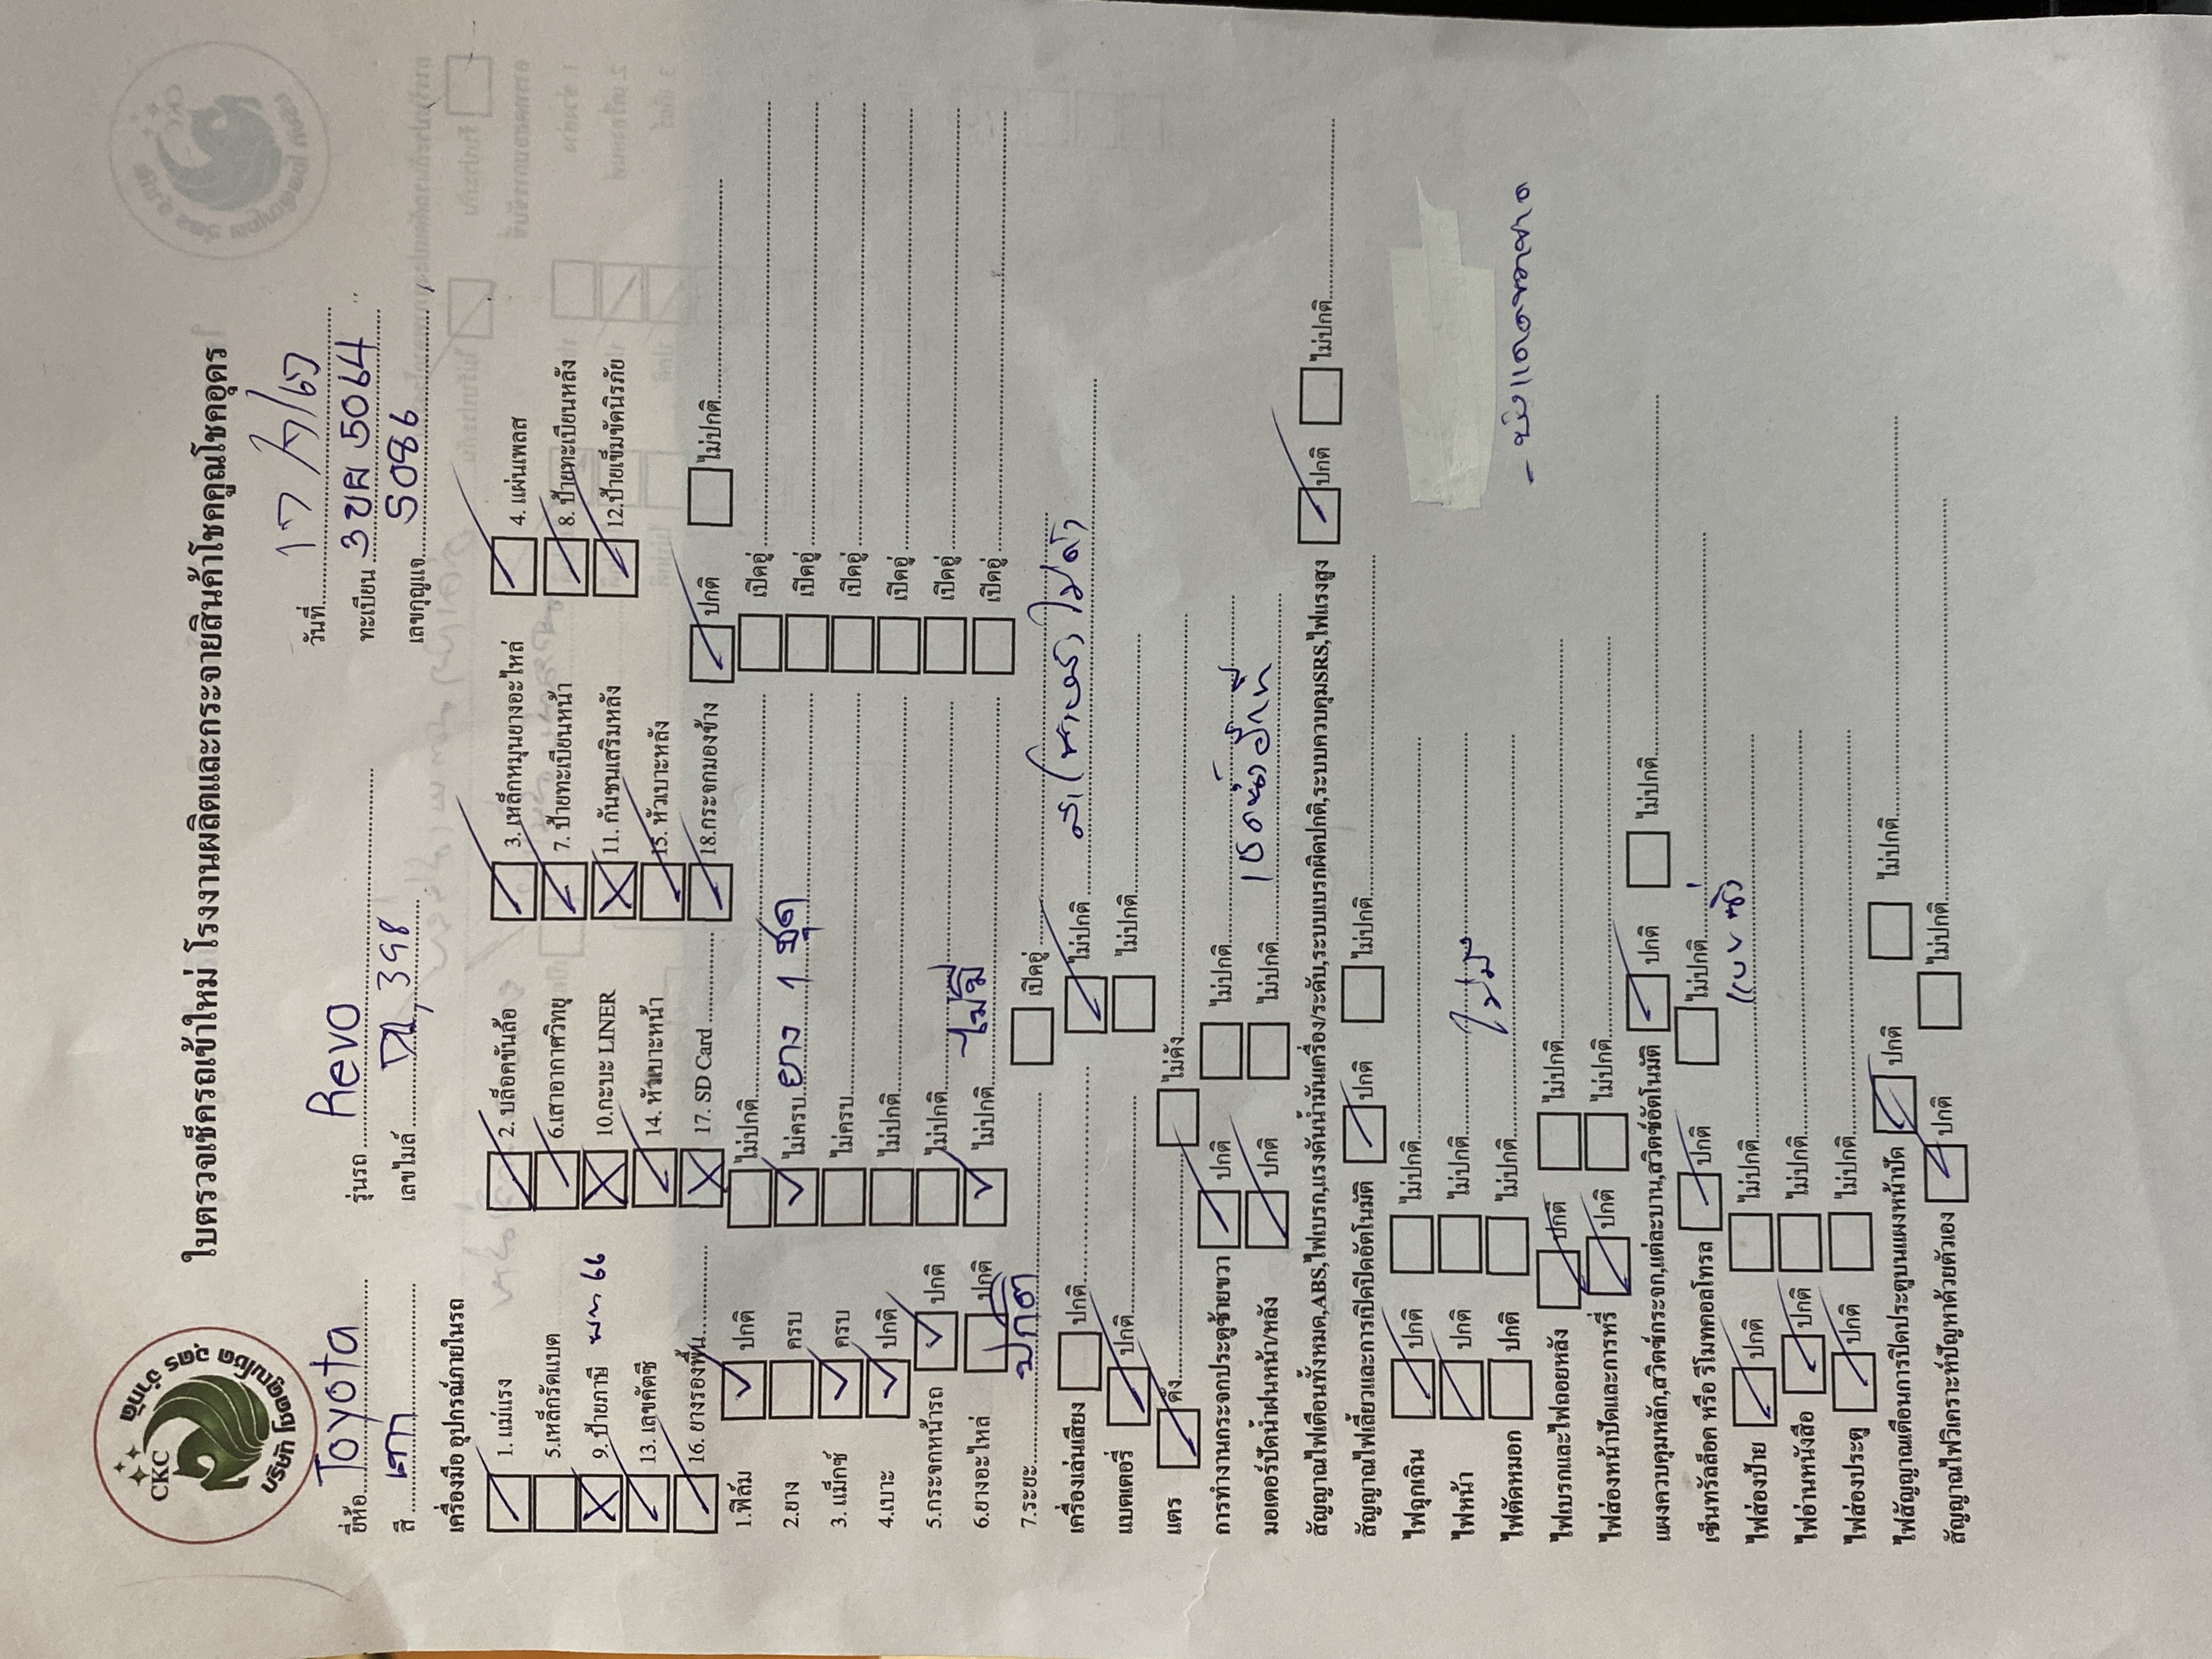 CKC
บริษัท โชคคูณโชค อุดร จำกัด
ใบตรวจเช็ครถเข้าใหม่ โรงงานผลิตและกระจายสินค้าโชคคูณโชคอุดร
วันที่ 17 / 7 / 67
ยี่ห้อ Toyota รุ่นรถ Revo ทะเบียน 3ขผ 5064
สี เทา เลขไมล์ 398 เลขกุญแจ 5086
เครื่องมือ อุปกรณ์ภายในรถ
1. แม่แรง 2. บล็อคขันล้อ 3. เหล็กหมุนยางอะไหล่ 4. แผ่นเพลส
5.เหล็กรัดแบต 6.เสาอากาศวิทยุ 7. ป้ายทะเบียนหน้า 8. ป้ายทะเบียนหลัง
9. ป้ายภาษี 66 10.กะบะ LINER 11. กันชนเสริมหลัง 12.ป้ายเข็มขัดนิรภัย
13. เลขคัตซี 14. หัวเบาะหน้า 15. หัวเบาะหลัง
16. ยางรองพื้น 17. SD Card 18.กระจกมองข้าง ปกติ ไม่ปกติ
1.ฟิล์ม ปกติ ไม่ปกติ เปิดอู่
2.ยาง ครบ ไม่ครบ ยาง 1 ชุด เปิดอู่
3. แม็กซ์ ครบ ไม่ครบ เปิดอู่
4.เบาะ ปกติ ไม่ปกติ เปิดอู่
5.กระจกหน้ารถ ปกติ ไม่ปกติ เปิดอู่
6.ยางอะไหล่ ปกติ ไม่ปกติ ไม่มี เปิดอู่
7.ระยะ ปกติ เปิดอู่
เครื่องเล่นเสียง ปกติ ไม่ปกติ
แบตเตอรี่ ปกติ ไม่ปกติ
แตร ดัง ไม่ดัง
การทำงานกระจกประตูซ้ายขวา ปกติ ไม่ปกติ
มอเตอร์ปัดน้ำฝนหน้า/หลัง ปกติ ไม่ปกติ
สัญญาณไฟเตือนทั้งหมด,ABS,ไฟเบรก,แรงดันน้ำมันเครื่อง/ระดับ,ระบบเบรกผิดปกติ,ระบบควบคุมSRS,ไฟแรงสูง ปกติ ไม่ปกติ
สัญญาณไฟเลี้ยวและการเปิดปิดอัตโนมัติ ปกติ ไม่ปกติ
ไฟฉุกเฉิน ปกติ ไม่ปกติ
ไฟหน้า ปกติ ไม่ปกติ
ไฟตัดหมอก ปกติ ไม่ปกติ ไม่มี
ไฟเบรกและไฟถอยหลัง ปกติ ไม่ปกติ
ไฟส่องหน้าปัดและการหรี่ ปกติ ไม่ปกติ
แผงควบคุมหลัก,สวิตซ์กระจก,แต่ละบาน,สวิตซ์อัตโนมัติ ปกติ ไม่ปกติ
เซ็นทรัลล็อค หรือ รีโมทคอลโทรล ปกติ ไม่ปกติ
ไฟส่องป้าย ปกติ ไม่ปกติ
ไฟอ่านหนังสือ ปกติ ไม่ปกติ
ไฟส่องประตู ปกติ ไม่ปกติ
ไฟสัญญาณเตือนการปิดประตูบนแผงหน้าปัด ปกติ ไม่ปกติ
สัญญาณไฟวิเคราะห์ปัญหาด้วยตัวเอง ปกติ ไม่ปกติ